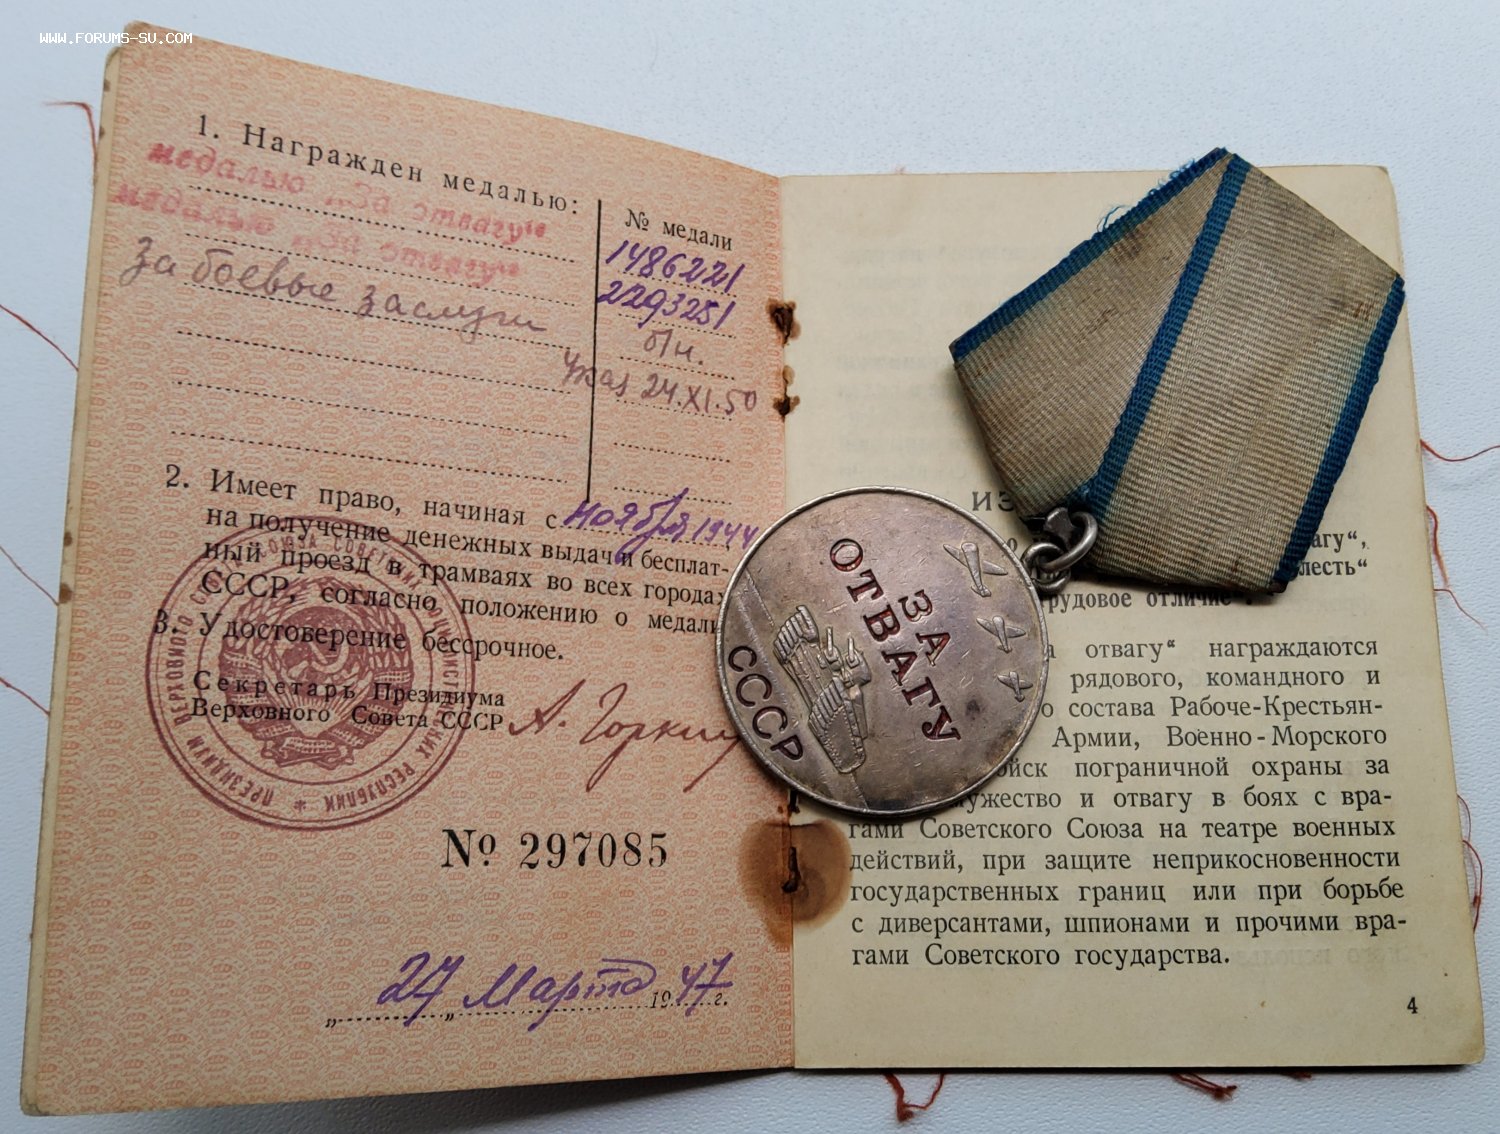 WWW.FORUMS-SU.COM
1. Награжден медалью:
№ медали
медалью „За отвагу“
1486221
медалью „За отвагу“
2293251
За боевые заслуги
б/н.
Указ 24.XI.50
2. Имеет право, начиная с ноября 1944
на получение денежных выдач и бесплат-
ный проезд в трамваях во всех городах
СССР, согласно положению о медали
3. Удостоверение бессрочное.
Секретарь Президиума
Верховного Совета СССР
А. Горкин
№ 297085
„27„ Марта 1947 г.
ПРЕЗИДИУМ ВЕРХОВНОГО СОЮЗА СОВЕТСКИХ СОЦИАЛИСТИЧЕСКИХ РЕСПУБЛИК *
ЗА
ОТВАГУ
СССР
ИЗ
вагу“,
лесть“
рудовое отличие“.
а отвагу“ награждаются
рядового, командного и
о состава Рабоче-Крестьян-
Армии, Военно-Морского
ойск пограничной охраны за
мужество и отвагу в боях с вра-
гами Советского Союза на театре военных
действий, при защите неприкосновенности
государственных границ или при борьбе
с диверсантами, шпионами и прочими вра-
гами Советского государства.
4